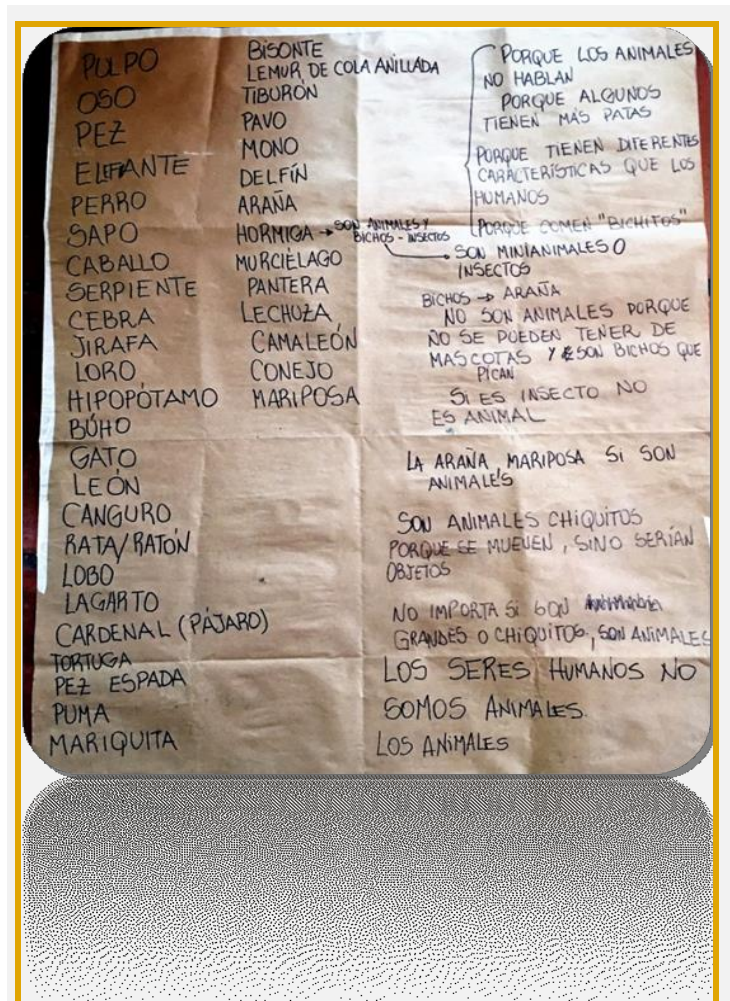 PULPO
OSO
PEZ
ELEFANTE
PERRO
SAPO
CABALLO
SERPIENTE
CEBRA
JIRAFA
LORO
HIPOPÓTAMO
BÚHO
GATO
LEÓN
CANGURO
RATA/RATÓN
LOBO
LAGARTO
CARDENAL (PÁJARO)
TORTUGA
PEZ ESPADA
PUMA
MARIQUITA
BISONTE
LEMUR DE COLA ANILLADA
TIBURÓN
PAVO
MONO
DELFÍN
ARAÑA
HORMIGA → SON ANIMALES Y
BICHOS - INSECTOS
MURCIÉLAGO
PANTERA
LECHUZA
CAMALEÓN
CONEJO
MARIPOSA
PORQUE LOS ANIMALES
NO HABLAN
PORQUE ALGUNOS
TIENEN MÁS PATAS
PORQUE TIENEN DIFERENTES
CARACTERÍSTICAS QUE LOS
HUMANOS
PORQUE COMEN "BICHITOS"
SON MINIANIMALES O
INSECTOS
BICHOS → ARAÑA
NO SON ANIMALES PORQUE
NO SE PUEDEN TENER DE
MASCOTAS Y SON BICHOS QUE
PICAN
SI ES INSECTO NO
ES ANIMAL
LA ARAÑA MARIPOSA SI SON
ANIMALES
SON ANIMALES CHIQUITOS
PORQUE SE MUEVEN, SINO SERÍAN
OBJETOS
NO IMPORTA SI SON
GRANDES O CHIQUITOS, SON ANIMALES
LOS SERES HUMANOS NO
SOMOS ANIMALES.
LOS ANIMALES